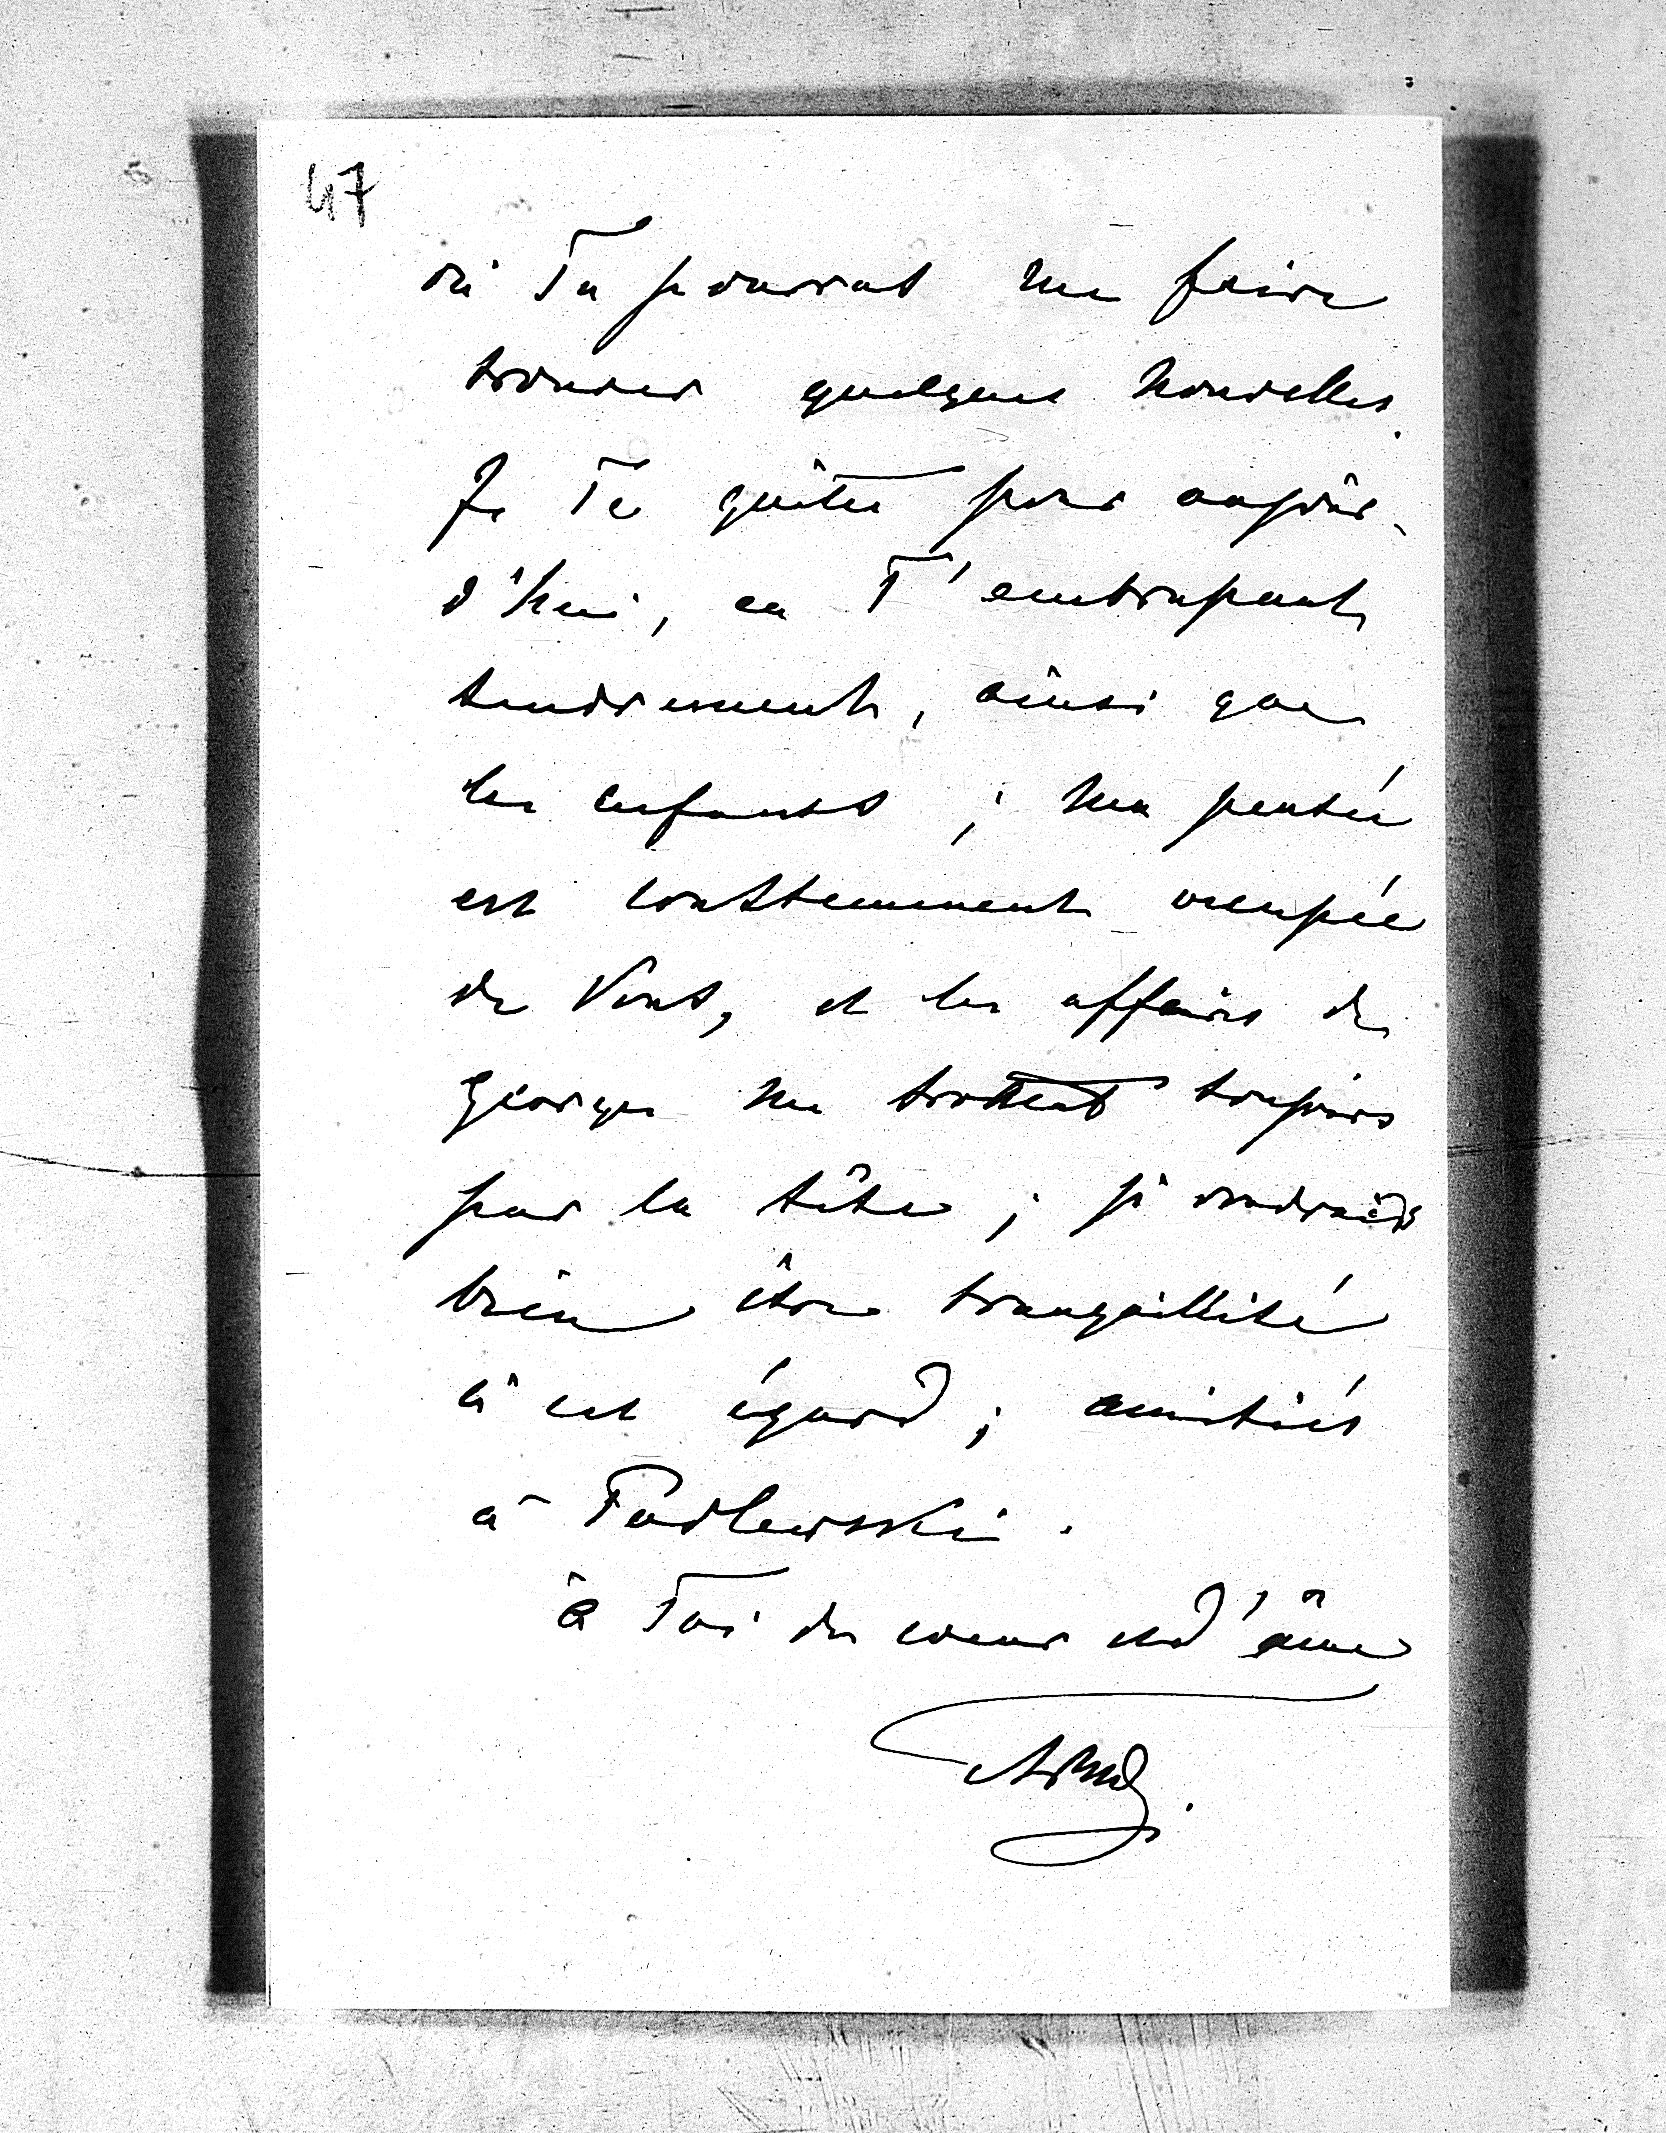 47
où Tu pourras me faire
trouver quelques nouvelles.
Je Te quitte pour aujour-
d'hui, en T'embrassant
tendrement, ainsi que
les enfants ; ma pensée
est constemmment occupée
de Vous, et les affaires de
Georges me trottent toujours
par la tête ; je voudrais
bien être tranquillisé
à cet égard ; amitiés
à Padlewski.
à Toi de coeur et d'âme